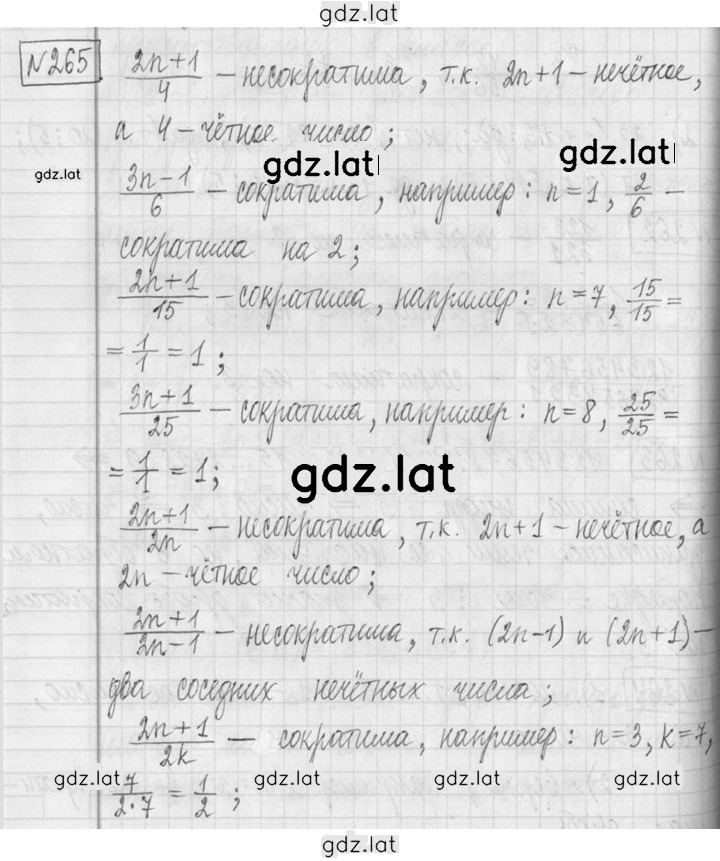 gdz.lat
№265 (2n+1)/4 – несократима, т.к. 2n+1 – нечётное,
а 4 – чётное число;
gdz.lat gdz.lat
gdz.lat
(3n-1)/6 – сократима, например: n=1, 2/6 –
сократима на 2;
(2n+1)/15 – сократима, например: n=7, 15/15 =
= 1/1 = 1;
(3n+1)/25 – сократима, например: n=8, 25/25 =
= 1/1 = 1;
gdz.lat
(2n+1)/2n – несократима, т.к. 2n+1 – нечётное, а
2n – чётное число;
(2n+1)/(2n-1) – несократима, т.к. (2n-1) и (2n+1) –
два соседних нечётных числа;
(2n+1)/2k – сократима, например: n=3, k=7,
gdz.lat gdz.lat gdz.lat gdz.lat
7/(2·7) = 1/2;
gdz.lat